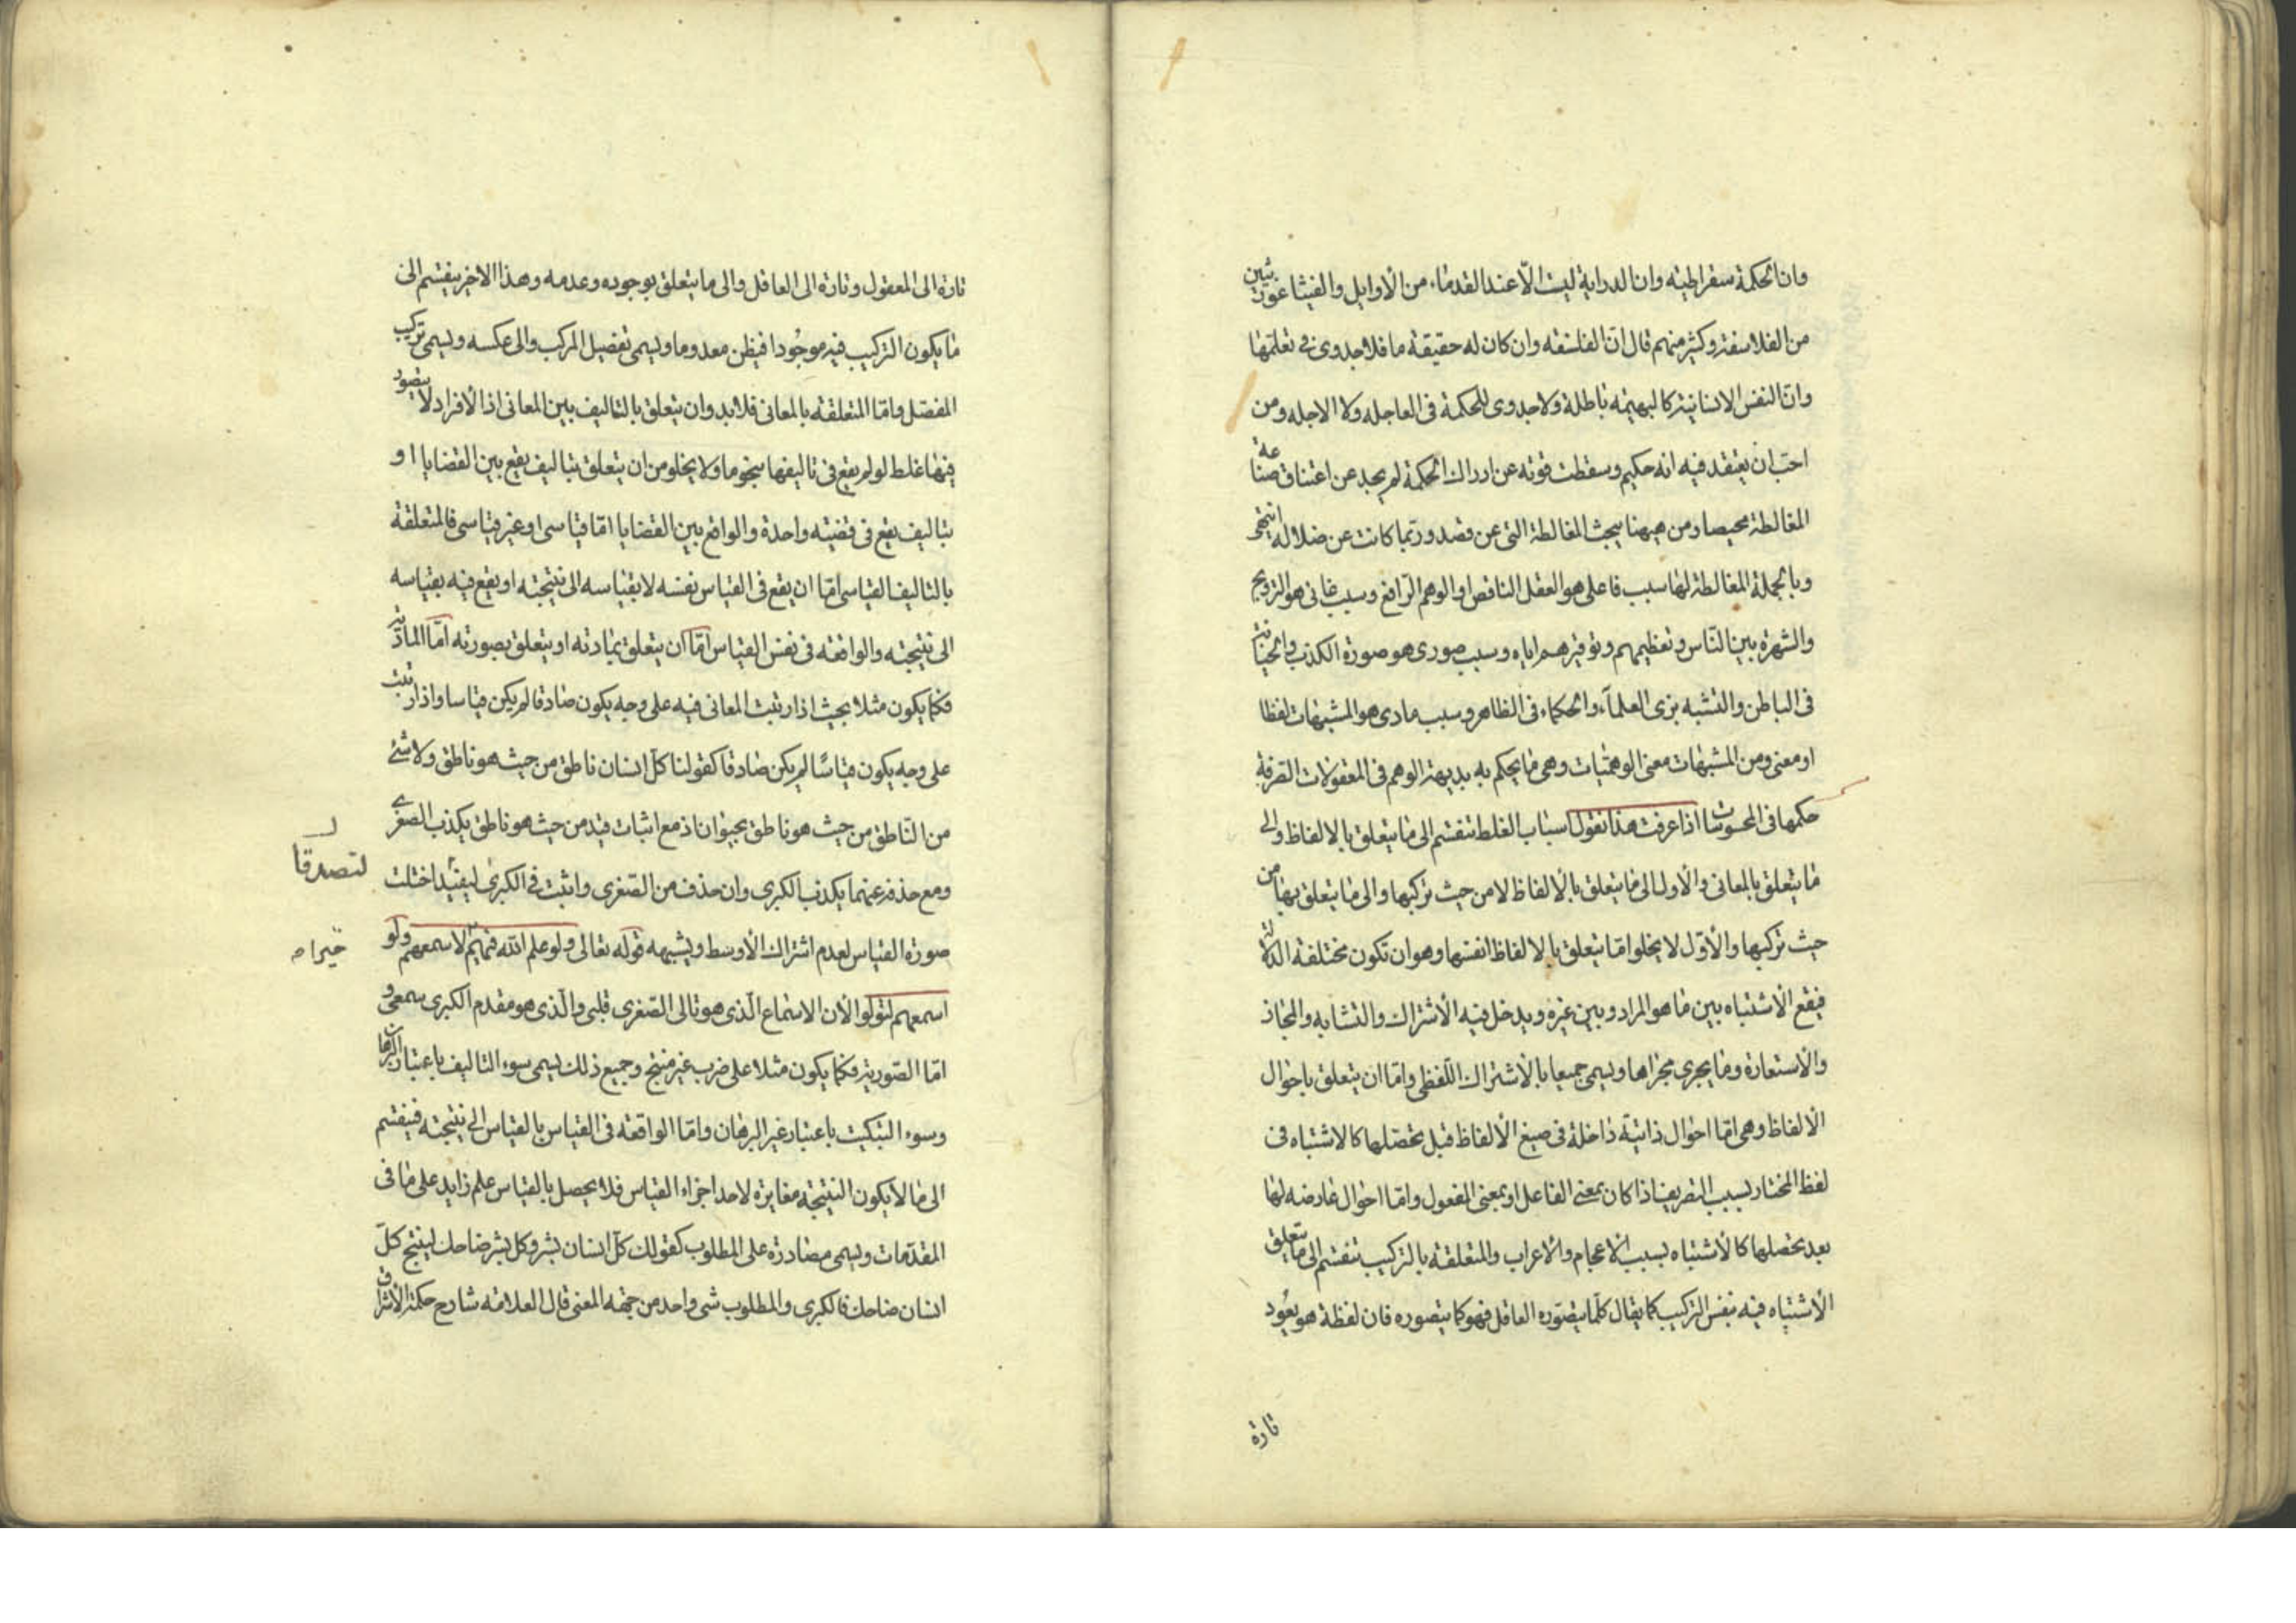 وان الحكمة سقراطيه وان الدراية ليست الّا عند القدماء من الأوايل والفيثاغورثيين
من الفلاسفة وكثير منهم قال انّ الفلسفه وان كان له حقيقة ما فلا جدوى في تعلّمها
وانّ النفس الانسانية كالبهيمه باطلة ولا جدوى للحكمة فى العاجله ولا الاجله ومن
احبّ ان يعتقد فيه انه حكيم وسقطت قوته عن ادراك الحكمة لم يجد عن اعتناق صناعة
المغالطة محيصا ومن هيهنا يبحث المغالطة التى عن قصد وربّما كانت عن ضلاله انتهى
وبالجملة المغالطة لها سبب فاعلى هو العقل الناقص او الوهم الرافع وسبب غائى هو الترويج
والشهرة بين النّاس وتعظيمهم وتوقيرهم اياه وسبب صورى هو صورة الكذب والخيانة
فى الباطن والتشبه بزى العلمآء والحكماء فى الظاهر وسبب مادى هو المشبهات لفظا
او معنى ومن المشبهات معنى الوهميّات وهى ما يحكم به بديهة الوهم فى المعقولات الصرفة
حكمها فى المحسوسات اذا عرفت هذا نقول اسباب الغلط تنقسم الى ما يتعلق بالالفاظ والى
ما يتعلق بالمعانى والأول الى ما يتعلق بالألفاظ لا من حيث تركبها والى ما يتعلق بها من
حيث تركبها والأوّل لا يخلو امّا يتعلق بالالفاظ انفسها وهو ان تكون مختلفة الدلالة
فيقع الأشتباه بين ما هو المراد وبين غيره ويدخل فيه الأشتراك والتشابه والمجاز
والأستعارة وما يجرى مجراها ويسمى جميعا بالأشتراك اللّفظى وامّا ان يتعلق باحوال
الألفاظ وهى امّا احوال ذاتيّة داخلة فى صيغ الألفاظ قبل تحصّلها كالاشتباه فى
لفظ المختار بسبب التصريف اذا كان بمعنى الفاعل او بمعنى المفعول وامّا احوال عارضه لها
بعد تحصلها كالأشتباه بسبب الاعجام والاعراب والمتعلقة بالتركيب تنقسم الى ما يتعلق
الأشتباه فيه بنفس التركيب كما يقال كلّما يتصوّره العاقل فهو كما يتصوره فان لفظة هو يعود
تارة
تارة الى المعقول وتارة الى العاقل والى ما يتعلق بوجوده وعدمه وهذا الاخير ينقسم الى
ما يكون التركيب فيه موجودا فيظن معدوما ويسمى تفصيل المركب والى عكسه ويسمى تركيب
المفصّل وامّا المتعلقة بالمعانى فلا بد وان يتعلق بالتاليف بين المعانى اذ الأفراد لا يتصور
فيها غلط لو لم يقع فى تاليفها بنحو ما ولا يخلو من ان يتعلق بتاليف يقع بين القضايا او
بتاليف يقع فى قضيّه واحدة والواقع بين القضايا امّا قياسى او غير قياسى فالمتعلقة
بالتاليف القياسى امّا ان يقع فى القياس نفسه لا بقياسه الى نتيجته او يقع فيه بقياسه
الى نتيجته والواقعه فى نفس القياس امّا ان يتعلق بمادته او يتعلق بصورته امّا المادّية
فكما يكون مثلا بحيث اذا رتبت المعانى فيه على وجه يكون صادقا لم يكن قياسا واذا رتبت
على وجه يكون قياسًا لم يكن صادقا كقولنا كلّ انسان ناطق من حيث هو ناطق ولا شئ
من النّاطق من حيث هو ناطق بحيوان اذ مع اثبات قيد من حيث هو ناطق يكذب الصغرى
ومع حذفه عنهما يكذب الكبرى وان حذف من الصّغرى واثبت فى الكبرى ليفيدا اختلت
لتصدقا
صورة القياس لعدم اشتراك الأوسط ويشبهه قوله تعالى ولو علم اللّه فيهم لاسمعهم ولو
خيرا
اسمعهم لتولّوا لأن الاسماع الّذى هو تالى الصّغرى قلبى والّذى هو مقدم الكبرى سمعى و
امّا الصّورية فكما يكون مثلا على ضرب غير منتج وجميع ذلك يسمى سوء التاليف باعتبار البرهان
وسوء التبكيت باعتبار غير البرهان وامّا الواقعة فى القياس بالقياس الى نتيجته فينقسم
الى ما لا يكون النتيجة مغايرة لاحد اجزاء القياس فلا يحصل بالقياس علم زايد على ما فى
المقدّمات ويسمى مصادرة على المطلوب كقولك كلّ انسان بشر وكل بشر ضاحك لينتج كلّ
انسان ضاحك فالكبرى والمطلوب شى واحد من جهة المعنى قال العلامه شارح حكمة الأشراق